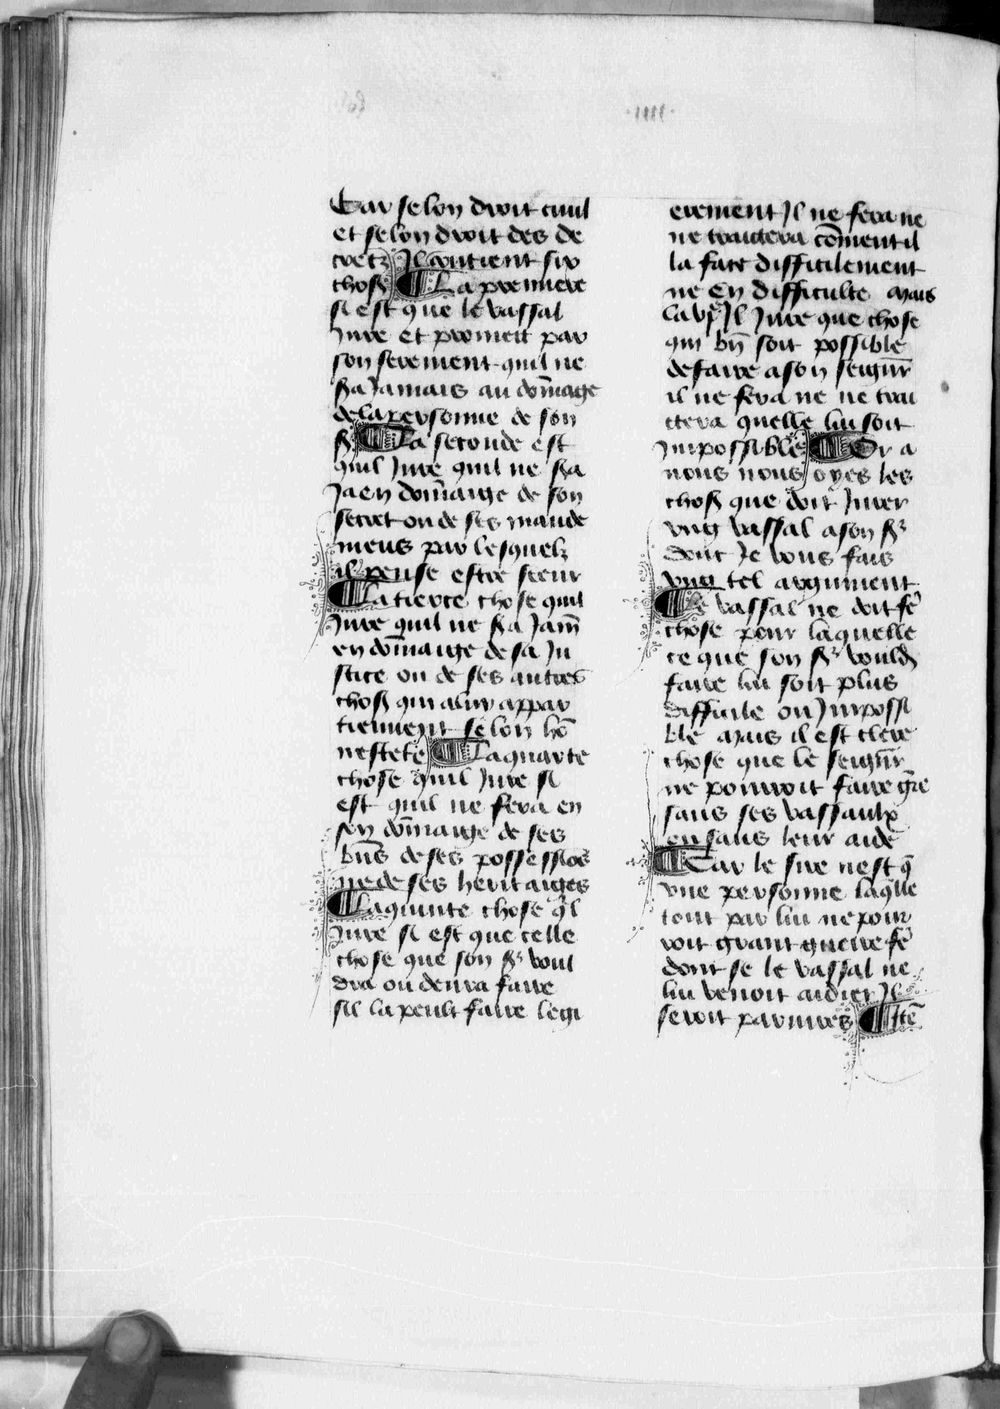 ·iiii·
Car selon droit ciuil
et selon droit des de
cretz Il contient six
choses ¶ La premiere
si est que le vassal
Jure et promett par
son serement quil ne
sa Jamais au dōmage
dela personne de son
sr ¶ La seconde est
quil Jure quil ne sa
Ja en dōmaige de son
secret ou de ses mande
mens par lesquelz
il pense estre seeur
¶ La tierce chose quil
Jure quil ne sa Jam̄
en dōmaige de sa Ju
stice ou de ses autres
choses qui aluy appar
tiennent selon hō
nestete ¶ La quarte
chose quil Jure si
est quil ne fera en
son dōmaige de ses
bn̄s de ses possessiōs
ne de ses heritaiges
¶ La quinte chose q̄l
Jure si est que celle
chose que son sr voul
dra ou deura faire
sil la peult faire legi
erement Il ne fera ne
ne traictera cōment il
la face difficilement
ne en difficulte mais
Il Jure que chose
qui bn̄ soit possible
de faire a son seign̄r
il ne fera ne ne trai
ctera quelle lui soit
Jmpossible ¶ Or a
nous nous oyes les
choses que doit Jurer
vng vassal a son sr
dont Je vous fais
vng tel argument
¶ Le vassal ne doit fē
chose pour laquelle
ce que son sr vouldr̄
faire lui soit plus
difficile ou Jmpossi
ble mais il est clere
chose que le seign̄r
ne pourroit faire gr̄e
sans ses vassaulx
en sans leur aide
¶ Car le sire nest q̄
vne personne laq̄lle
tout par lui ne pour
roit grant guerre fē
dont se le vassal ne
lui venoit aidier Il
seroit pariures ¶ Itē